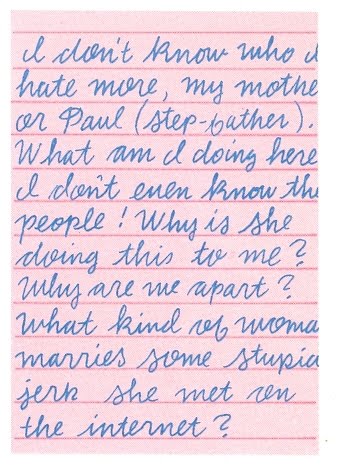 I don't know who I
hate more, my mothe
or Paul (step-father).
What am I doing here
I don't even know the
people! Why is she
doing this to me?
Why are we apart?
What kind of woma
marries some stupid
jerk she met on
the internet?